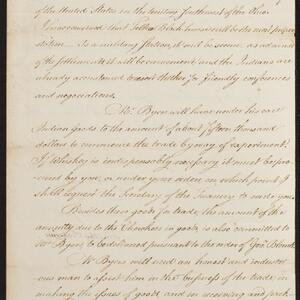 of the United States in the territory Southwest of the Ohio
I have conceived that Tellico Block house will be the most proper
station — As a military station, it will be secure; as advanced
of the settlements it will be convenient and the Indians are
already accustomed to resort thither for friendly conferences
and negociations.
Mr. Byers will have under his care
Indian goods to the amount of about fifteen thousand
dollars to commence the trade by way of experiment.
If Whiskey is indispensably necessary it must be pro
cured by you, or under your orders on which point I
shall request the Secretary of the Treasury to write you.
Besides these goods for trade, the amount of the
annuity due to the Cherokees in goods, is also committed to
Mr Byers, to be delivered pursuant to the order of Govr. Blount.
Mr Byers will need an honest and industri
ous man to assist him in the business of the trade, in
making the issues of goods, and in receiving and pack